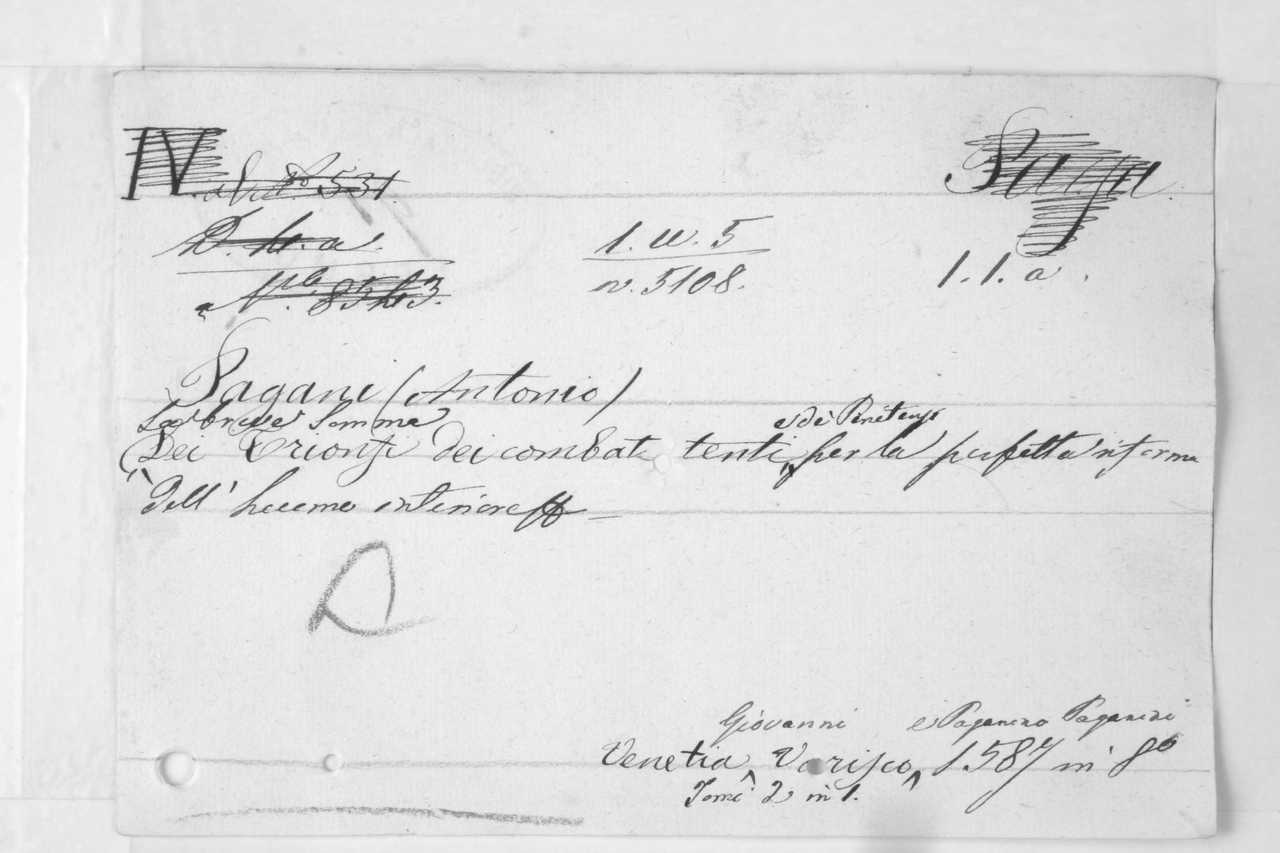 IV. Paga
N.º 531.
D. 4. a.
Nº. 8543.
1. u. 5
n. 5108.
1. 1. a.
Pagani (Antonio)
La breve somma e de' Penitenti
Dei Trionfi dei combattenti, per la perfetta riforma
dell' huomo interiore
Giovanni e Paganino Paganini
Venetia Varisco, 1587 in 8º
Tomi 2 in 1.